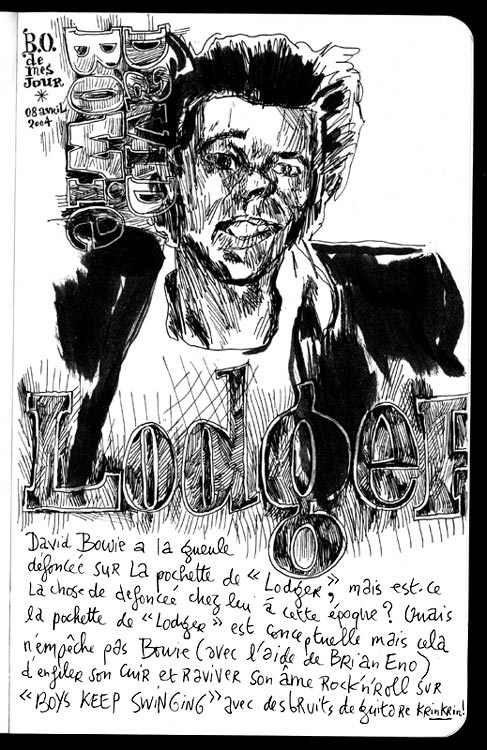 B.O.
de
mes
JOUR
*
08 avril
2004
David
BOWIE
LodgeR
David Bowie a la gueule
défoncée sur la pochette de « Lodger », mais est-ce
la chose de défoncée chez lui à cette époque ? Ouais
la pochette de « Lodger » est conceptuelle mais cela
n'empêche pas Bowie (avec l'aide de BRian Eno)
d'enfiler son cuir et Raviver son âme Rock'n'Roll sur
« BOYS KEEP SWINGING » avec des bRuits de guitare KRinKRin!